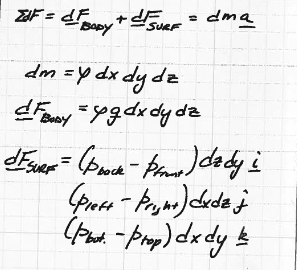 ΣdF = dF_BODY + dF_SURF = dm a
dm = φ dx dy dz
dF_BODY = φ g dx dy dz
dF_SURF = (p_back - p_front) dz dy i
(p_left - p_right) dx dz j
(p_bot. - p_top) dx dy k